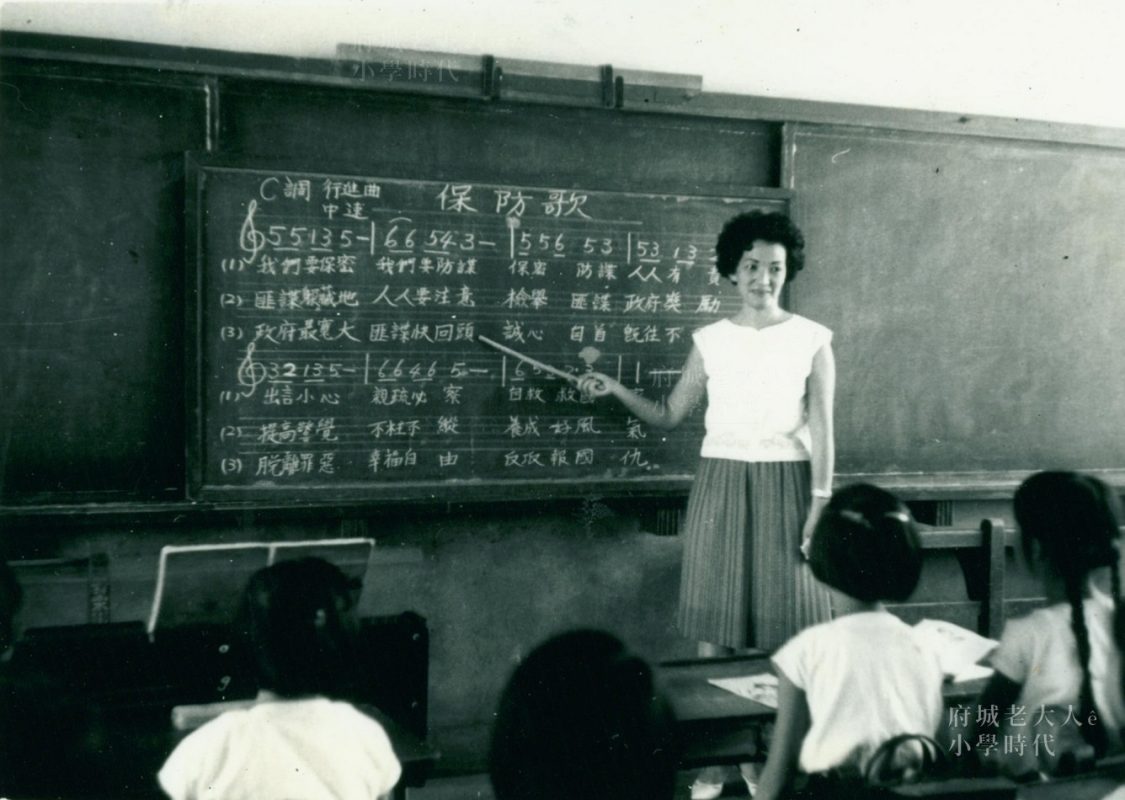 小學時代
C調 行進曲 保防歌
中速
5 5 1 3 5 – | 6 6 5 4 3 – | 5 5 6 5 3 | 5 3 1 3
(1) 我們要保密 我們要防諜 保密 防諜 人人有 責
(2) 匪諜躲藏地 人人要注意 檢舉 匪諜 政府獎 勵
(3) 政府最寬大 匪諜快回頭 誠心 自首 既往不
3 2 1 3 5 – | 6 6 4 6 5 – | 6 5 | 1 –
(1) 出言小心 親疏必 察 自救 救國
(2) 提高警覺 不枉不 縱 養成 好風 氣
(3) 脫離罪惡 幸福自 由 反攻 報國 仇。
府城老大人ê
小學時代